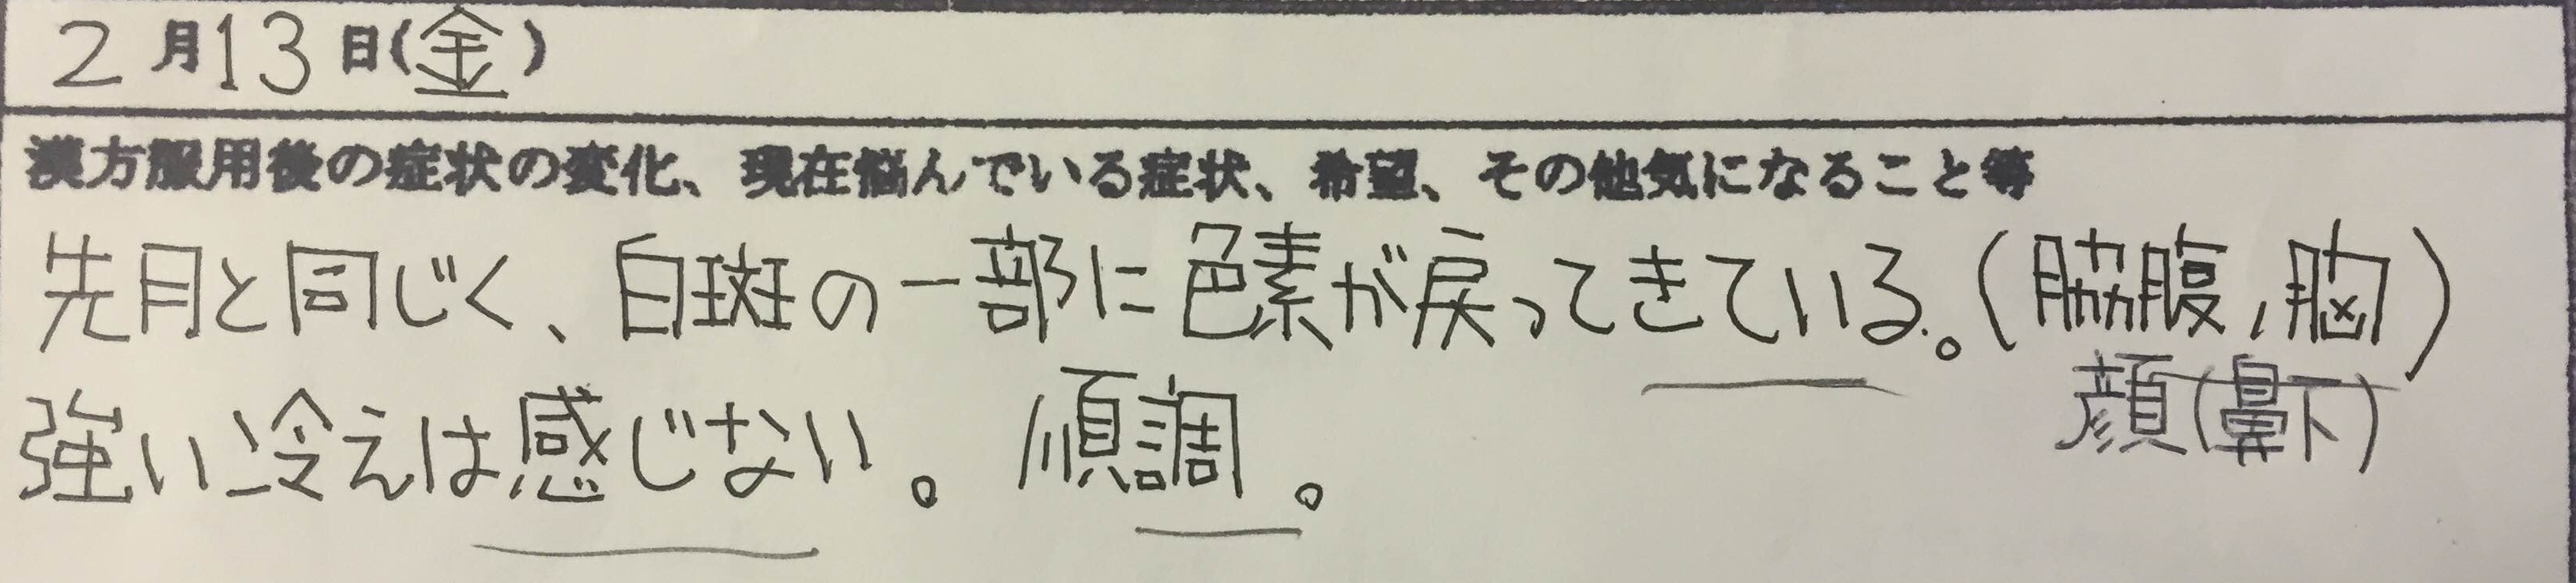 2月13日(金)
漢方服用後の症状の変化、現在悩んでいる症状、希望、その他気になること等
先月と同じく、白斑の一部に色素が戻ってきている。(脇腹,胸)
顔(鼻下)
強い冷えは感じない。順調。